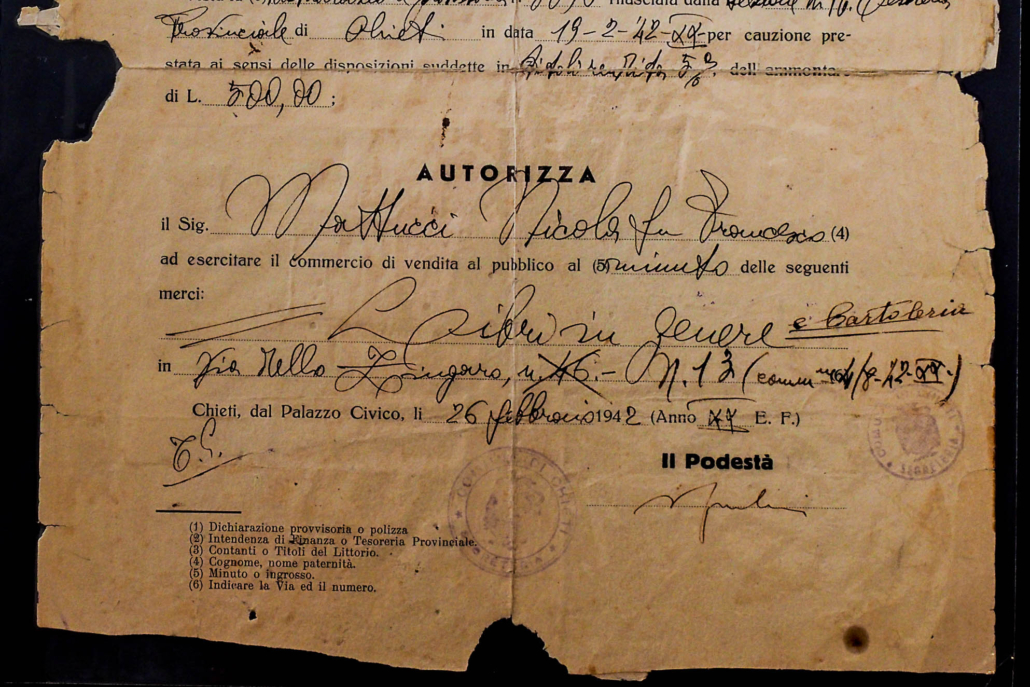 rilasciata dalla
Provinciale di Chieti in data 19-2-42-XX per cauzione pre-
stata ai sensi delle disposizioni suddette in titoli rendita 5% dell'ammontare
di L. 500,00;
AUTORIZZA
il Sig. Mattucci Nicola fu Francesco (4)
ad esercitare il commercio di vendita al pubblico al (5) minuto delle seguenti
merci:
Libri in genere e Cartoleria
in Via dello Zingaro, n. 16.- N. 13 (4/8-42-XX)
Chieti, dal Palazzo Civico, li 26 febbraio 1942 (Anno XX E. F.)
Il Podestà
COMUNE DI CHIETI
SEGRETERIA
(1) Dichiarazione provvisoria o polizza
(2) Intendenza di Finanza o Tesoreria Provinciale.
(3) Contanti o Titoli del Littorio.
(4) Cognome, nome paternità.
(5) Minuto o ingrosso.
(6) Indicare la Via ed il numero.